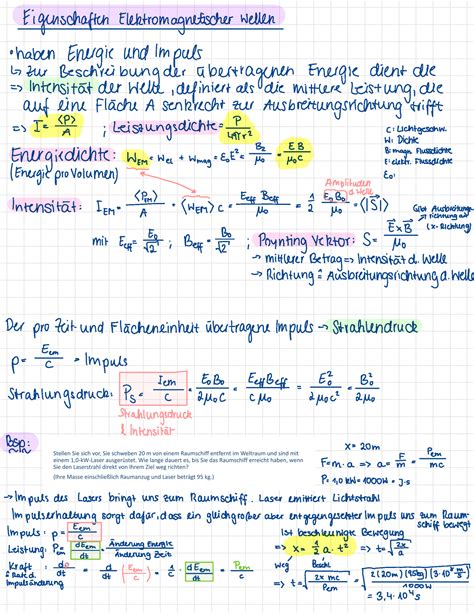 Eigenschaften Elektromagnetischer Wellen
• haben Energie und Impuls
↳ zur Beschreibung der übertragenen Energie dient die
=> Intensität der Welle, definiert als die mittlere Leistung, die
auf eine Fläche A senkrecht zur Ausbreitungsrichtung trifft
=> I = <P>/A ; Leistungsdichte = P/4πr²
C: Lichtgeschw.
W: Dichte
B: magn. Flussdichte
E: elektr. Flussdichte
ε₀:
Energiedichte: W_EM = W_el + W_mag = ε₀E² = B²/μ₀ = EB/μ₀c
(Energie pro Volumen)
Amplituden d. Welle
Intensität: I_EM = <P_EM>/A = <W_EM> c = E_eff B_eff/μ₀ = 1/2 E₀B₀/μ₀ = <|S|>
Gibt Ausbreitungsrichtung an (x-Richtung)
mit E_eff = E₀/√2 ; B_eff = B₀/√2 ; Poynting Vektor: S = E×B/μ₀
→ mittlerer Betrag => Intensität d. Welle
→ Richtung ≙ Ausbreitungsrichtung d. Welle
Der pro Zeit und Flächeneinheit übertragene Impuls → Strahlendruck
p = E_em/c = Impuls
Strahlungsdruck: P_S = I_em/c = E₀B₀/2μ₀c = E_eff B_eff/μ₀c = E₀²/2μ₀c² = B₀²/2μ₀
Strahlungsdruck
& Intensität
Bsp:
Stellen Sie sich vor, Sie schweben 20 m von einem Raumschiff entfernt im Weltraum und sind mit
einem 1,0-kW-Laser ausgerüstet. Wie lange dauert es, bis Sie das Raumschiff erreicht haben, wenn
Sie den Laserstrahl direkt von Ihrem Ziel weg richten?
(Ihre Masse einschließlich Raumanzug und Laser beträgt 95 kg.)
x = 20m
F = m·a => a = F/m = P_em/mc
P = 1,0 kW = 1000W = J·s
→ Impuls des Lasers bringt uns zum Raumschiff. Laser emittiert Lichtstrahl
Impulserhaltung sorgt dafür, dass ein gleichgroßer aber entgegengesetzter Impuls uns zum Raumschiff bewegt
Impuls: p = E_em/c
Ist beschleunigte Bewegung
Leistung: P_em = dE_em/dt = Änderung Energie/Änderung Zeit
=> x = 1/2 a · t² => t = √(2x/a)
Weg Beschl.
Kraft: dp/dt = d/dt (E_em/c) = 1/c · dE_em/dt = P_em/c
≙ Rate d. Impulsänderung
=> t = √(2x mc/P_em) = √(2(20m)(95kg)(3·10⁸)/1000W)
= 3,4·10⁴ s